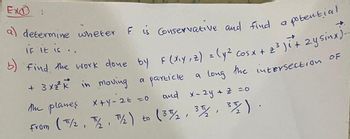 Ex① :
a) determine wheter F is Conservative and find a potential
if it is ..
b) find the work done by F(x,y,z) = (y² cos x + z³)i + 2y sinx)..
+ 3xz² k in moving a particle a long the intersection of
the planes x+y-2z=0 and x-2y+z=0
from (π/2, π/2, π/2) to (3π/2, 3π/2, 3π/2).